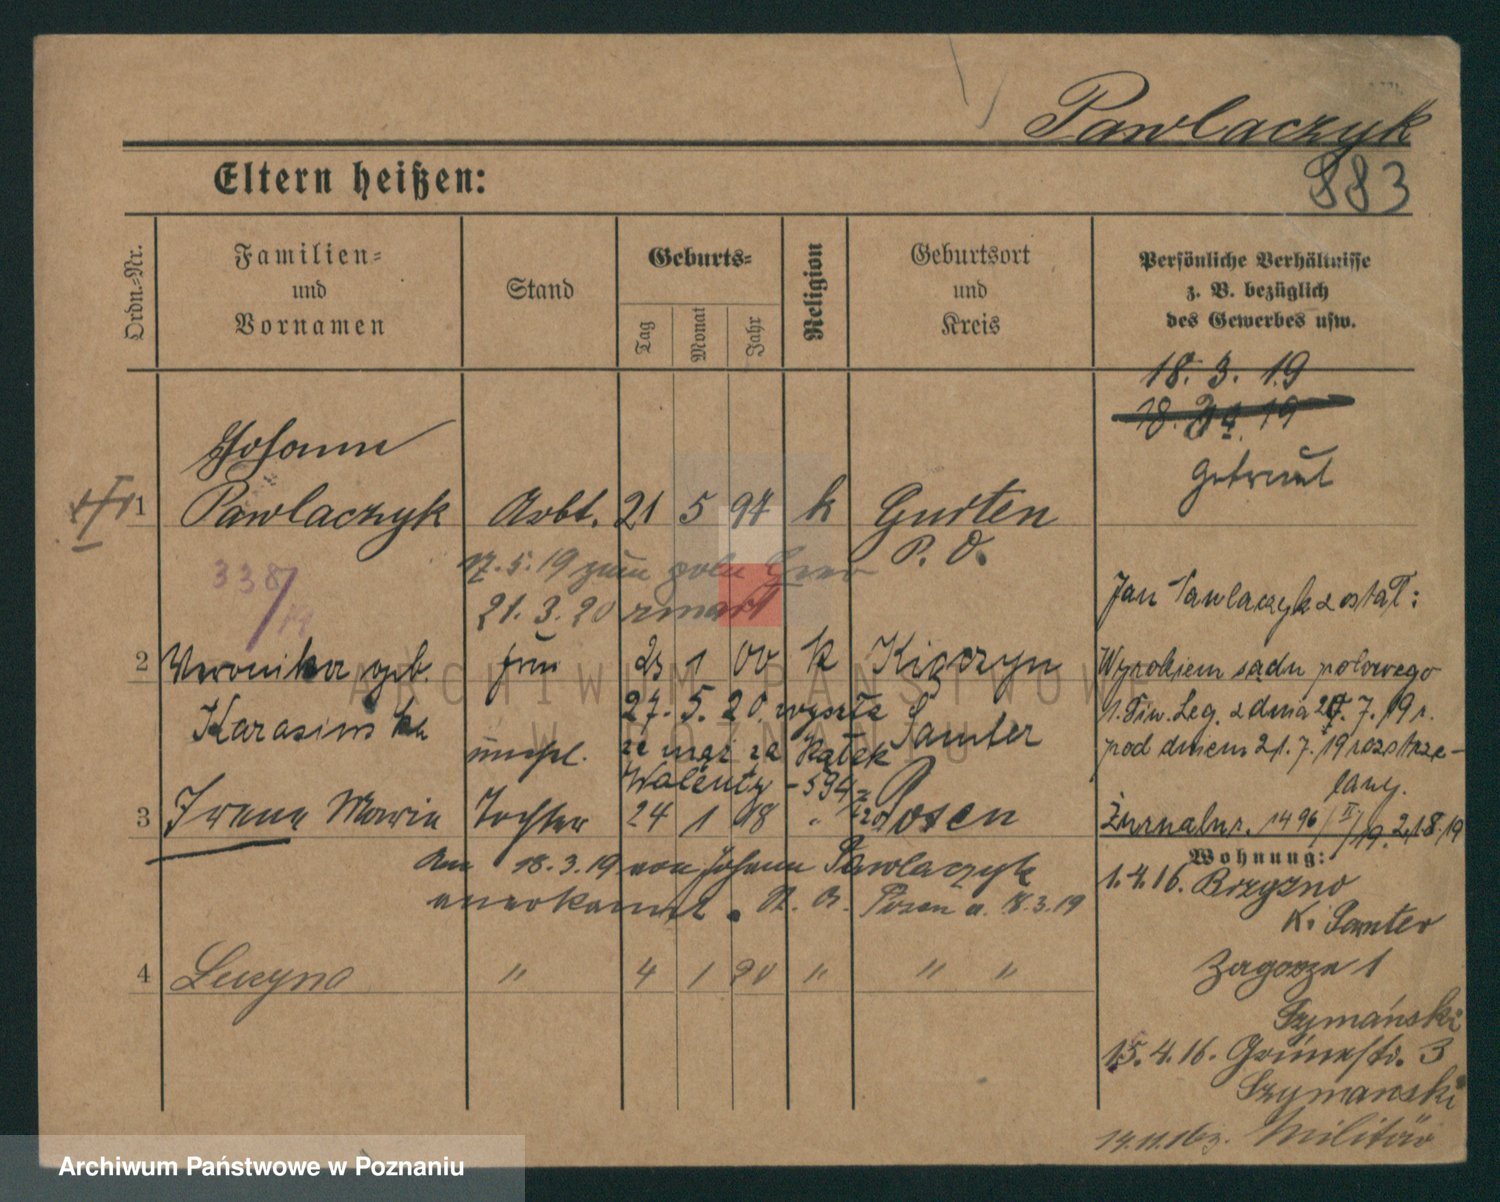 Pawlaczyk
883
Eltern heißen:
Ordn.-Nr.
Familien- und Vornamen
Stand
Geburts-
Tag
Monat
Jahr
Religion
Geburtsort und Kreis
Persönliche Verhältnisse
z. B. bezüglich
des Gewerbes usw.
18. 3. 19
18. 19
getraut
1 Johann
Pawlaczyk Arbt. 21 5 97 k Gurten
P. O.
338/19
17.5.19 zum poln
21.3.20 zmarł
Jan Pawlaczyk został:
2 Veronika geb. frau 23 1 00 k Kiączyn
Karasinska
Samter
27. 5. 20. wyszła
za mąż za Kątek
Walenty - 594
Wyrokiem sądu polowego
1. Diw. Leg. z dnia 20. 7. 19 r.
pod dniem 21. 7. 19 rozstrze-
lany.
Żurnalnr. 1496/II/19. 21.8.19
unehl.
3 Irene Maria Tochter 24 1 18 " Posen
Am 18.3.19 von Johann Pawlaczyk
anerkannt. St. A. Posen a. 18.3.19
4 Lucyna " 4 1 20 " " "
Wohnung:
1.4.16. Brzezno
K. Samter
Zagorze 1
Szymański
15.4.16. Grünestr. 3
Szymanski
14.11.16 z. Militär
ARCHIWUM PAŃSTWOWE
W POZNANIU
Archiwum Państwowe w Poznaniu